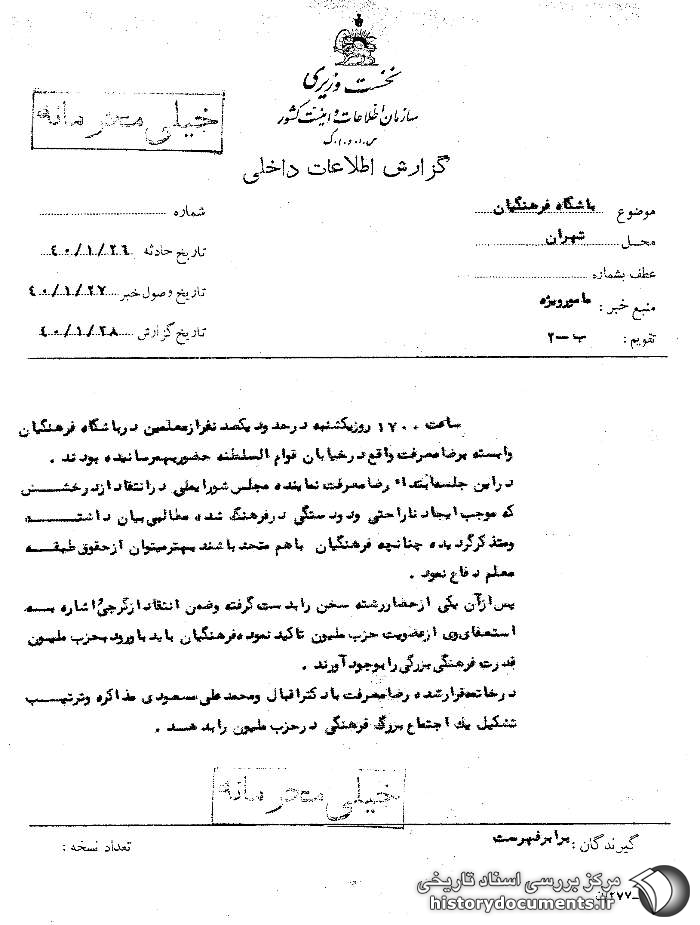 نخست وزیری
سازمان اطلاعات و امنیت کشور
س.ا.و.ا.ک
خیلی محرمانه
گزارش اطلاعات داخلی
موضوع باشگاه فرهنگیان
شماره
محل تهران
تاریخ حادثه ۴۰/۱/۲۶
عطف بشماره
تاریخ وصول خبر ۴۰/۱/۲۷
منبع خبر : مامور ویژه
تاریخ گزارش ۴۰/۱/۲۸
تقویم : ب - ۲
ساعت ۱۷۰۰ روز یکشنبه در حدود یکصد نفر از معلمین در باشگاه فرهنگیان
وابسته برضا معرفت واقع در خیابان قوام السلطنه حضور بهم رسانیده بودند .
در این جلسه ابتداء رضا معرفت نماینده مجلس شورایملی در انتقاد از درخشش
که موجب ایجاد ناراحتی و دو دستگی در فرهنگ شده مطالبی بیان داشته
ومتذکر گردیده چنانچه فرهنگیان با هم متحد باشند بهتر میتوان از حقوق طبقه
معلم دفاع نمود .
پس از آن یکی از حضار رشته سخن را بدست گرفته وضمن انتقاد از گرجی اشاره به
استعفای وی از عضویت حزب ملیون تاکید نموده فرهنگیان باید با ورود بحزب ملیون
قدرت فرهنگی بزرگی را بوجود آورند .
در خاتمه قرار شده رضا معرفت با دکتر اقبال ومحمد علی مسعودی مذاکره وترتیب
تشکیل یک اجتماع بزرگ فرهنگی در حزب ملیون را بدهد .
خیلی محرمانه
گیرندگان : برابر فهرست
تعداد نسخه :
مرکز بررسی اسناد تاریخی
historydocuments.ir